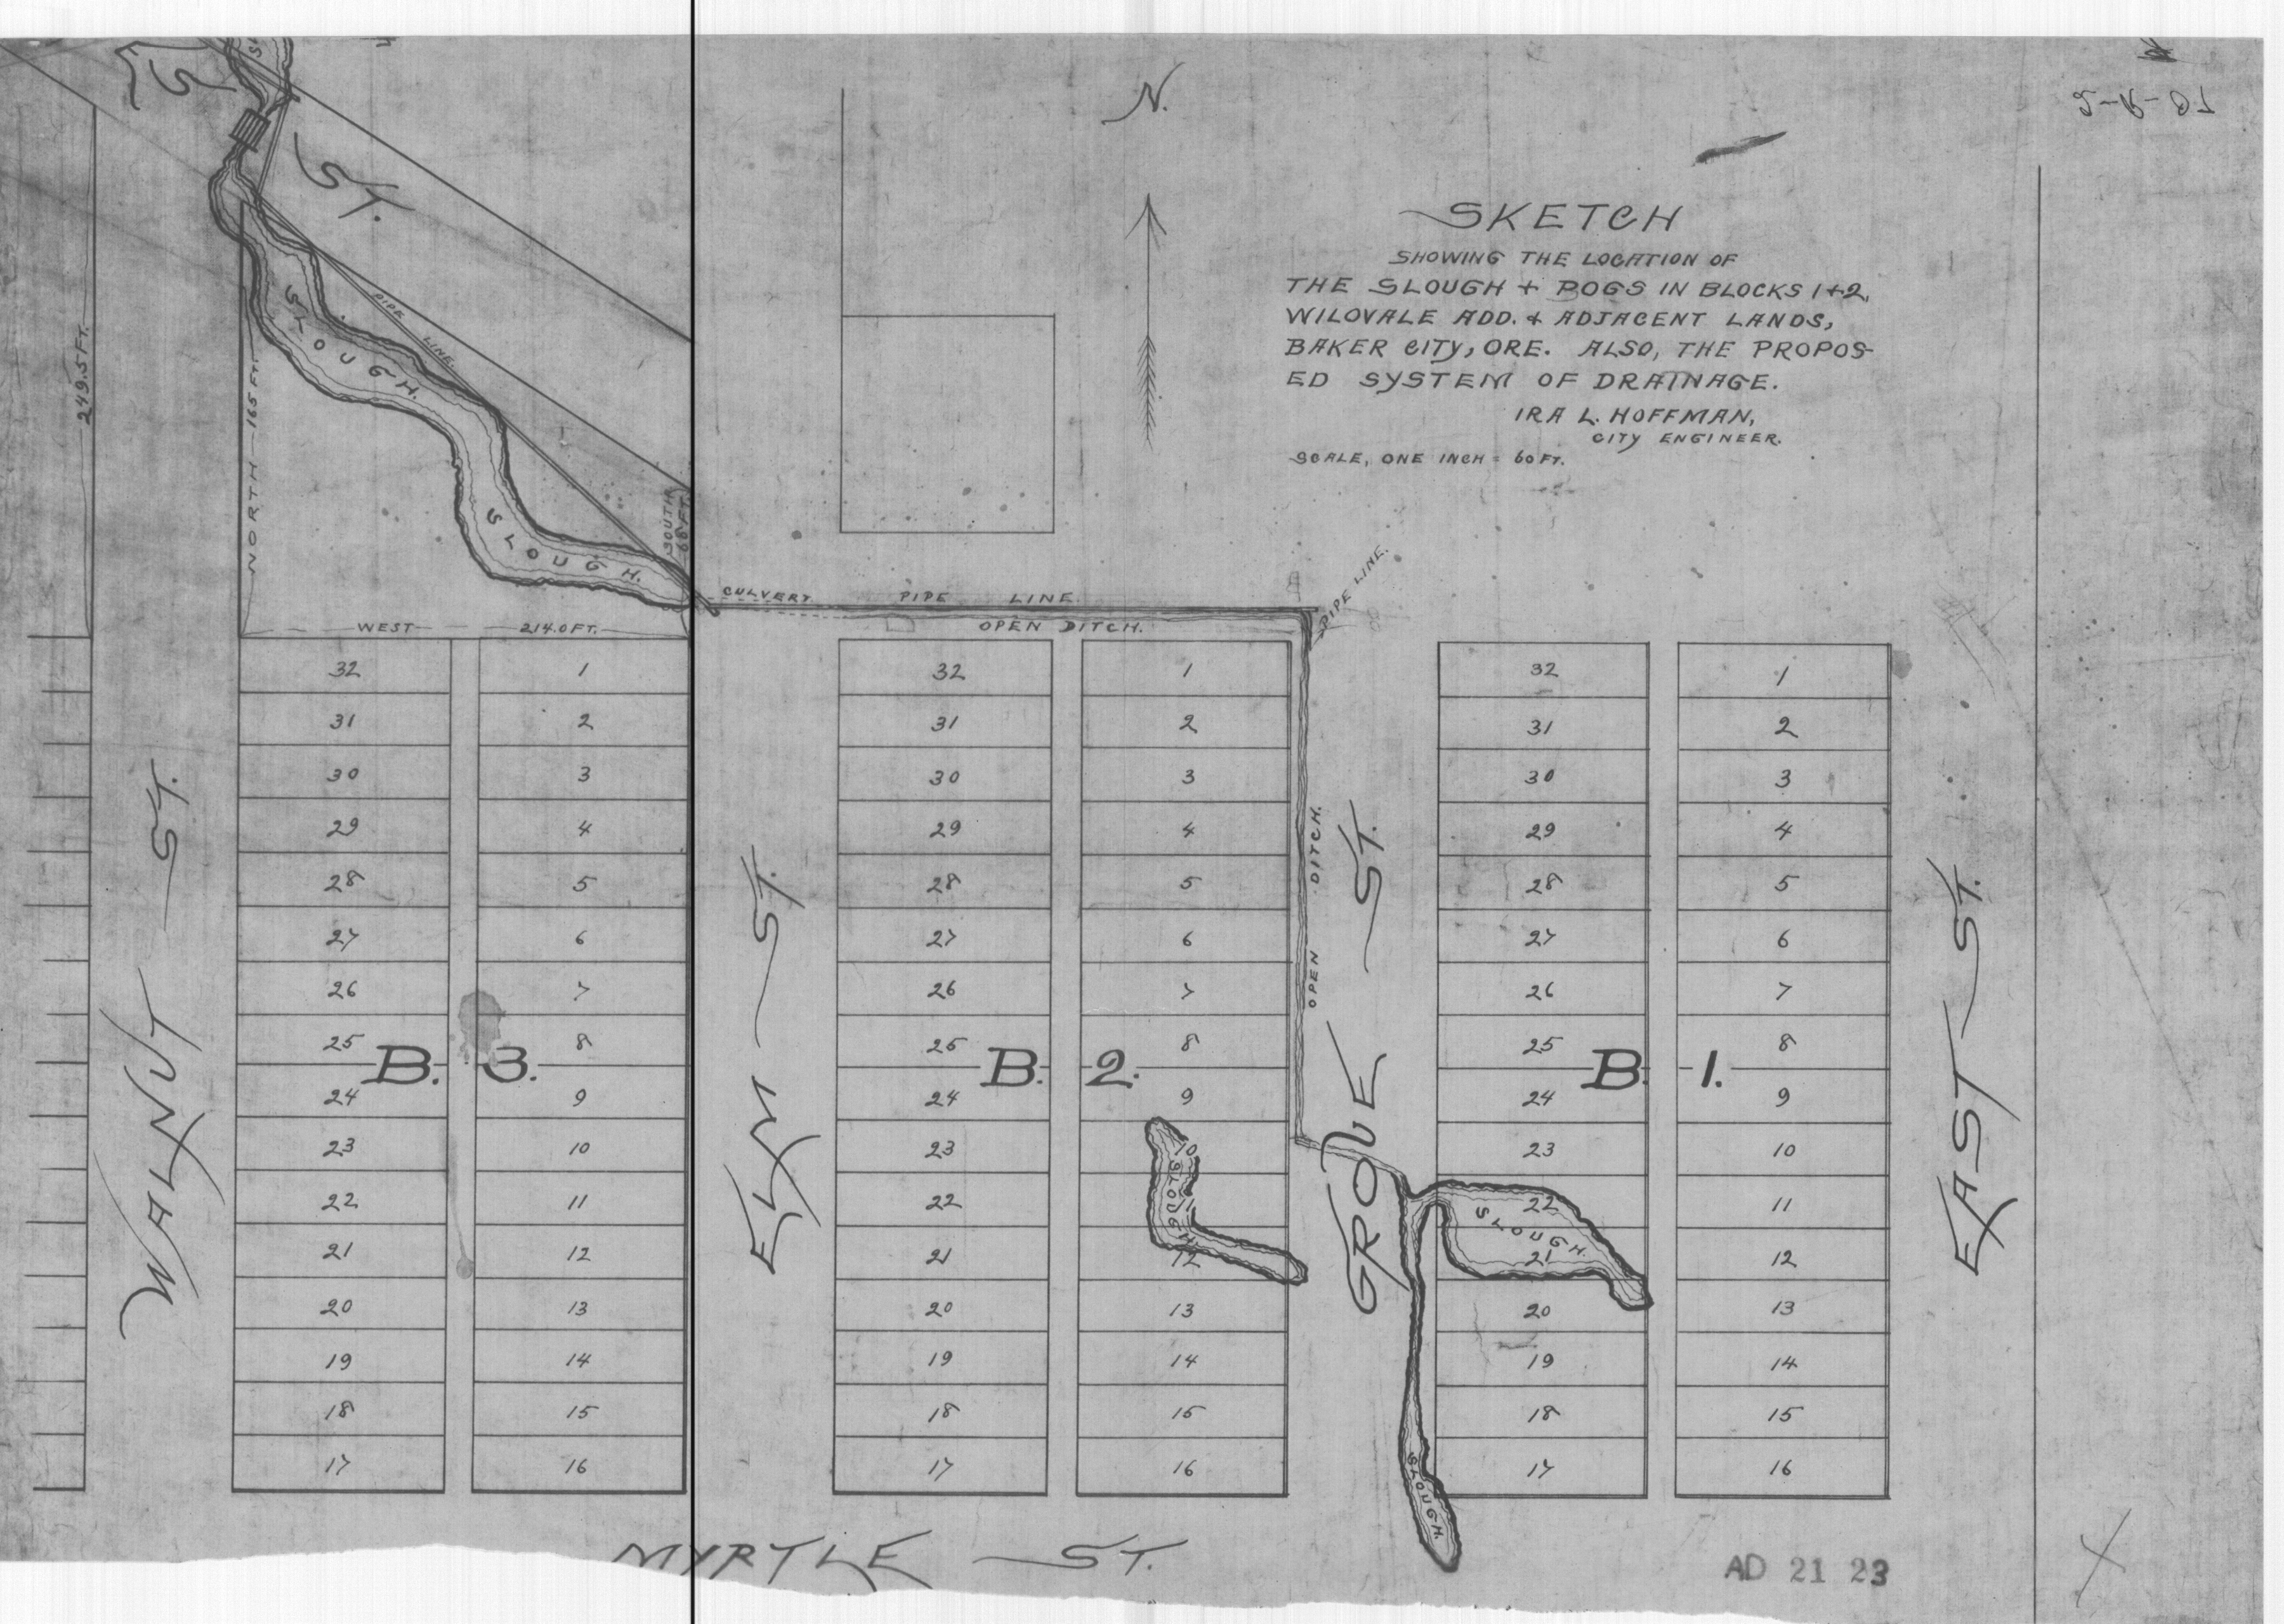 N.
SKETCH
SHOWING THE LOCATION OF
THE SLOUGH + BOGS IN BLOCKS 1+2,
WILOVALE ADD. & ADJACENT LANDS,
BAKER CITY, ORE. ALSO, THE PROPOS-
ED SYSTEM OF DRAINAGE.
IRA L. HOFFMAN,
CITY ENGINEER.
SCALE, ONE INCH = 60 FT.
ST.
249.5 FT.
NORTH 165 FT.
SLOUGH.
PIPE LINE.
SLOUGH.
SOUTH
68 FT.
WEST 214.0 FT.
CULVERT PIPE LINE
OPEN DITCH.
PIPE LINE.
32 1 32 1 32 1
31 2 31 2 31 2
30 3 30 3 30 3
29 4 29 4 29 4
28 5 28 5 28 5
27 6 27 6 27 6
26 7 26 7 26 7
25 8 25 8 25 8
B. 3. B. 2. B. 1.
24 9 24 9 24 9
23 10 23 10 23 10
22 11 22 11 22 11
21 12 21 12 21 12
20 13 20 13 20 13
19 14 19 14 19 14
18 15 18 15 18 15
17 16 17 16 17 16
WALNUT ST.
ELM ST.
OPEN DITCH.
GROVE ST.
EAST ST.
SLOUGH
SLOUGH.
SLOUGH.
MYRTLE ST.
AD 21 23